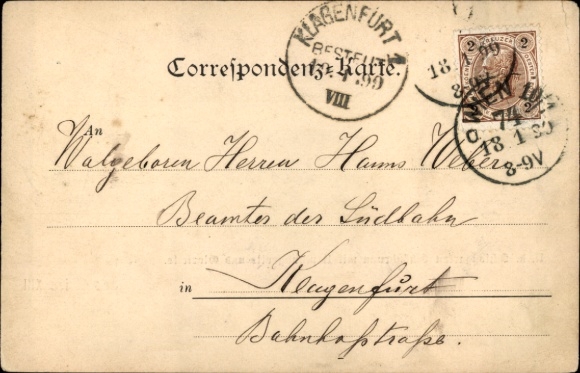 KLAGENFURT 1
BESTELLT
99
VIII
Correspondenz-Karte.
2 KREUZER 2
18 1 99
WIEN 10/1
74
18 1 99
8-9V
An
Walgeboren Herren Hanns Weber
Beamter der Südbahn
in Klagenfurt
Bahnhofstraße.